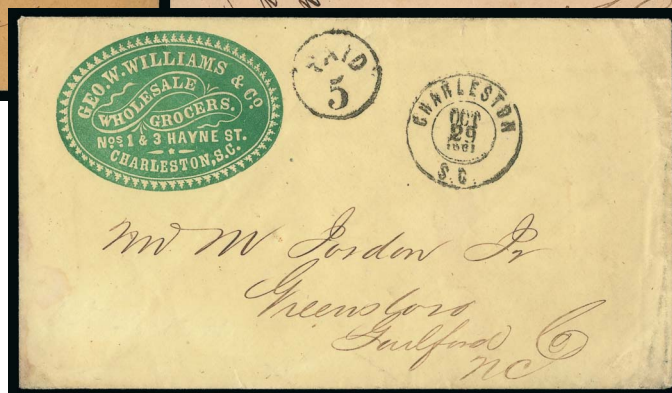 GEO. W. WILLIAMS & Co
WHOLESALE
GROCERS.
Nos 1 & 3 HAYNE ST.
CHARLESTON, S.C.
PAID
5
CHARLESTON
OCT
29
1861
S.C.
M Jordon Jr
Greensboro
Guilford Co
NC